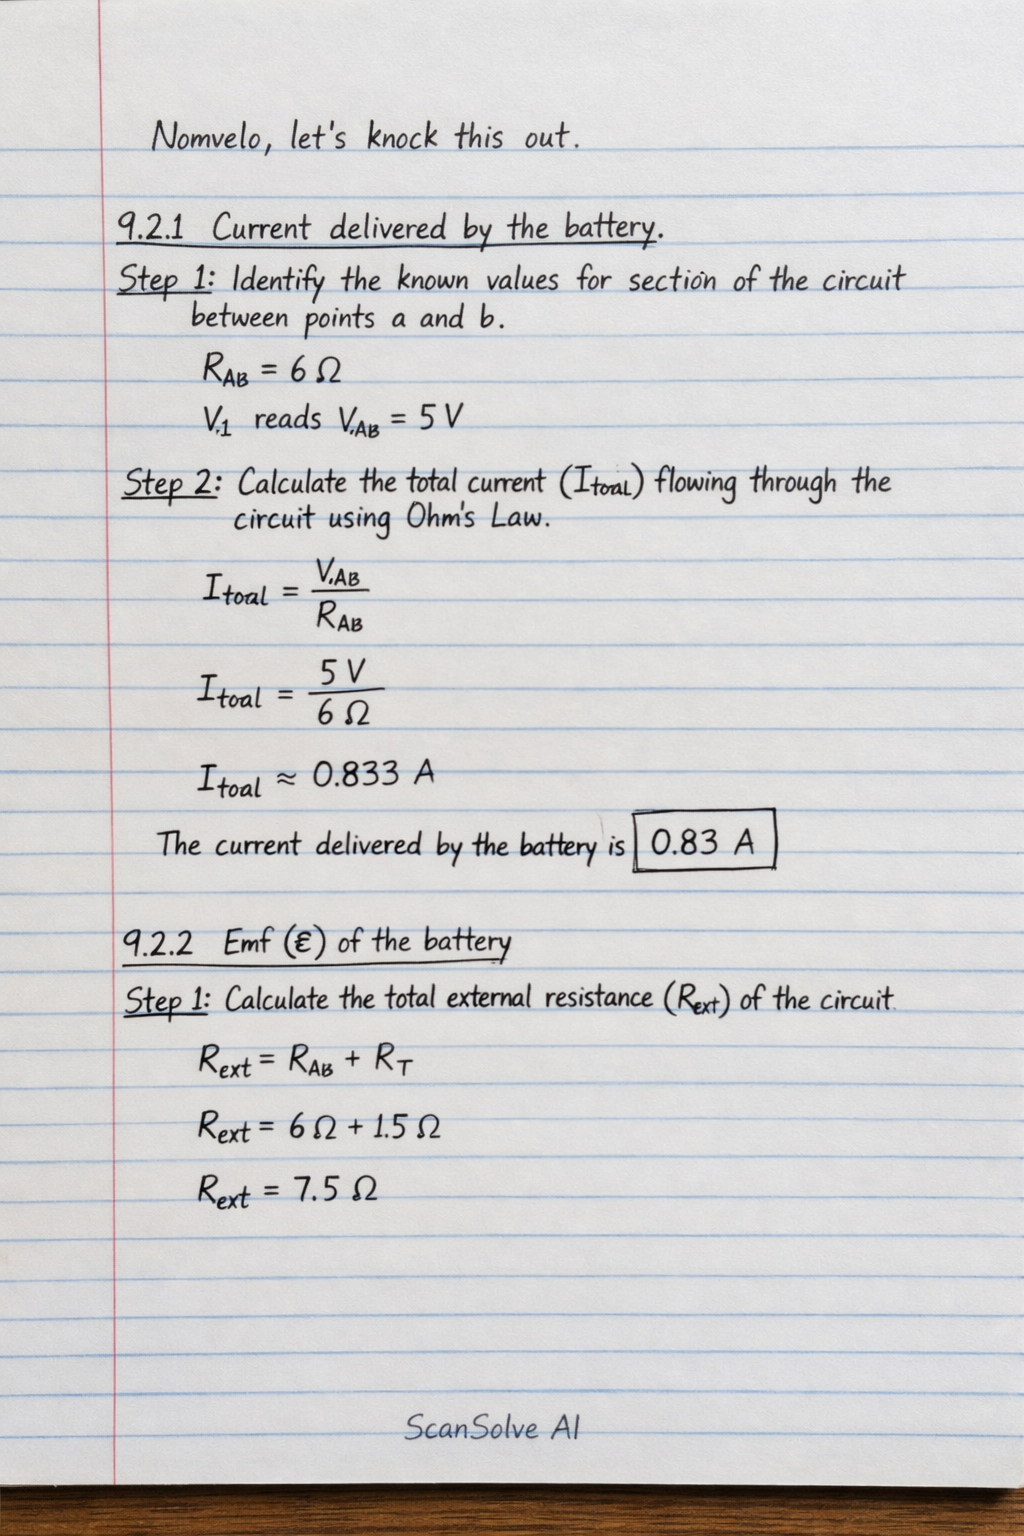 Nomvelo, let's knock this out.
9.2.1 Current delivered by the battery.
Step 1: Identify the known values for section of the circuit
between points a and b.
R_AB = 6 Ω
V.1 reads V.AB = 5 V
Step 2: Calculate the total current (I_toal) flowing through the
circuit using Ohm's Law.
I_toal = V.AB / R_AB
I_toal = 5 V / 6 Ω
I_toal ≈ 0.833 A
The current delivered by the battery is 0.83 A
9.2.2 Emf (ε) of the battery
Step 1: Calculate the total external resistance (R_ext) of the circuit.
R_ext = R_AB + R_T
R_ext = 6 Ω + 1.5 Ω
R_ext = 7.5 Ω
ScanSolve AI